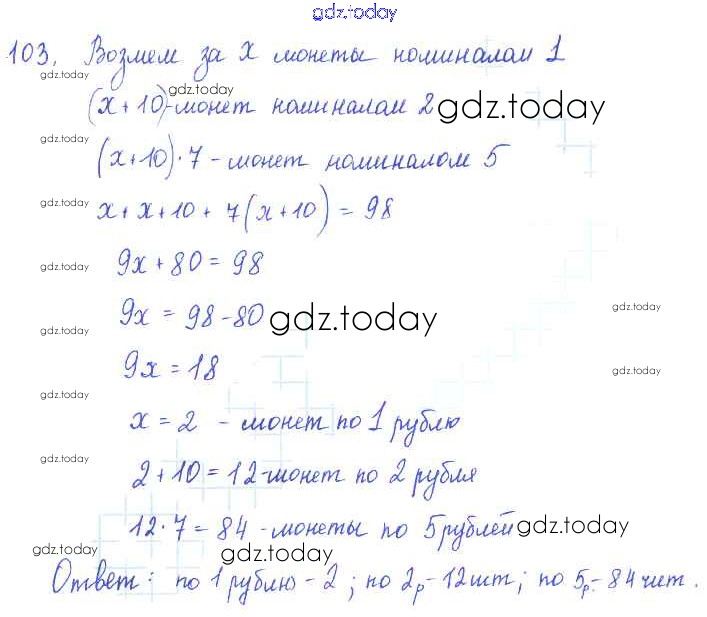 gdz.today
103. Возмем за x монеты номиналам 1
gdz.today
gdz.today
(x+10)-монет номиналам 2 gdz.today
gdz.today
(x+10)·7 - монет номиналом 5
gdz.today
x+x+10+7(x+10)=98
gdz.today
9x+80=98
gdz.today
9x=98-80 gdz.today
gdz.today
9x=18
gdz.today
gdz.today
x=2 - монет по 1 рублю
gdz.today
2+10=12-монет по 2 рубля
12·7=84 - монеты по 5 рублей gdz.today
gdz.today gdz.today
Ответ: по 1 рублю - 2; по 2р-12шт; по 5р.-84шт.